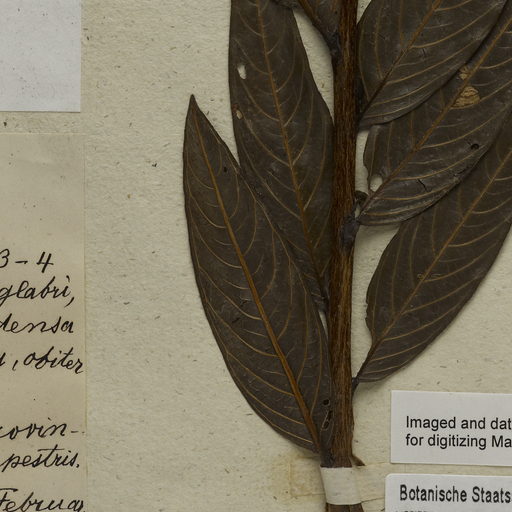 3-4
glabri,
densa
, obiter
ovin-
pestris.
Februa
Imaged and dat
for digitizing Ma
Botanische Staats